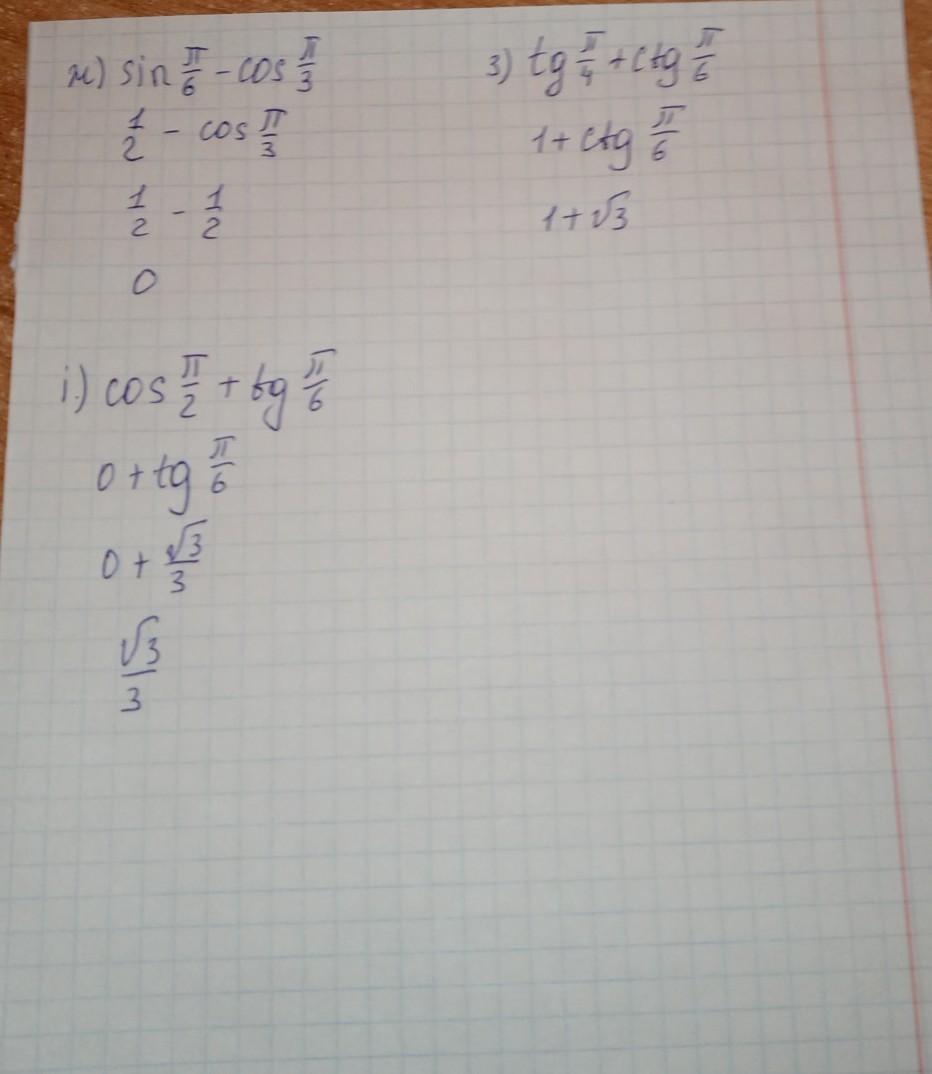 ж) sin π/6 - cos π/3
1/2 - cos π/3
1/2 - 1/2
0
з) tg π/4 + ctg π/6
1 + ctg π/6
1 + √3
і) cos π/2 + tg π/6
0 + tg π/6
0 + √3/3
√3/3